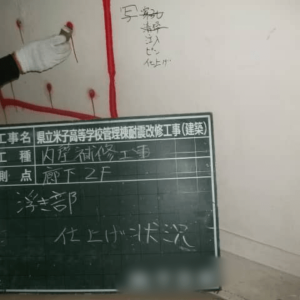 写
注入
ピン
仕上げ
工事名 県立米子高等学校管理棟耐震改修工事(建築)
工種 内壁補修工事
測点 廊下2F
浮き部
仕上げ状況